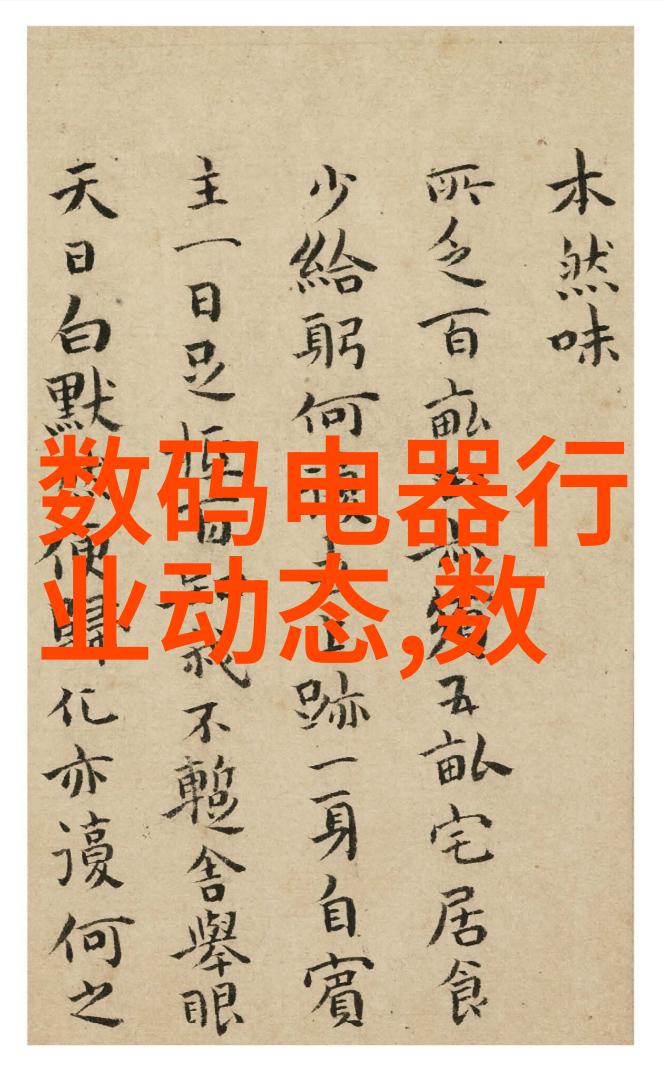 本然味
所乏百畝五畝宅居食
少給躬何跡一身自賓
主一日足我不蹔舍舉眼
天日白默便歸化亦謾何之
数码电器行
业动态,数